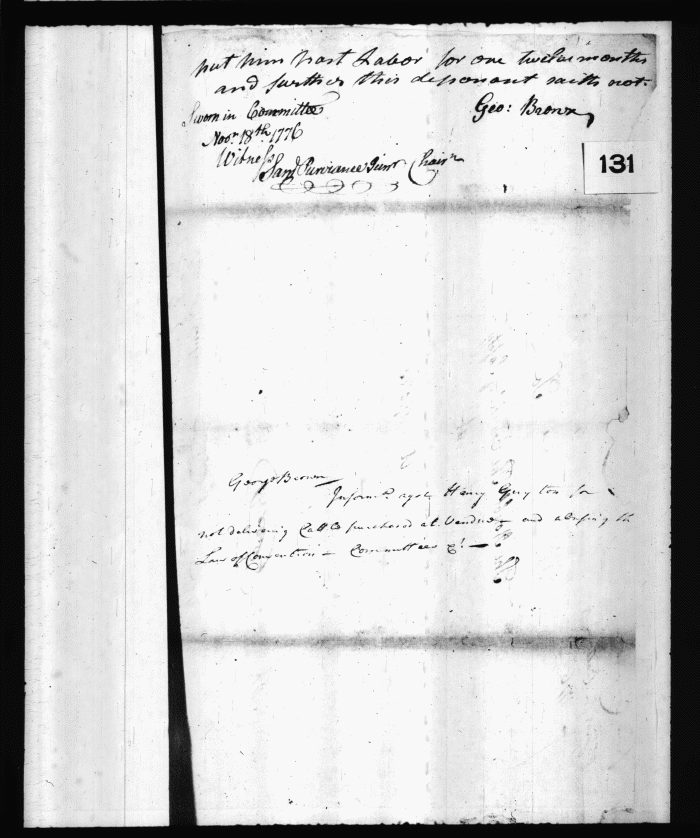 put him Past Labor for one twelve months
and further this deponant saith not.
Geo: Brown
Sworn in Committee
Novr. 18th. 1776
Witness
Saml Purviance Junr Chairn
131
George Brown
Informn. agst. Henry Guyton for
not delivering Cattle purchased at Vendue - and abusing the
Law of Convention - Committees &c. -